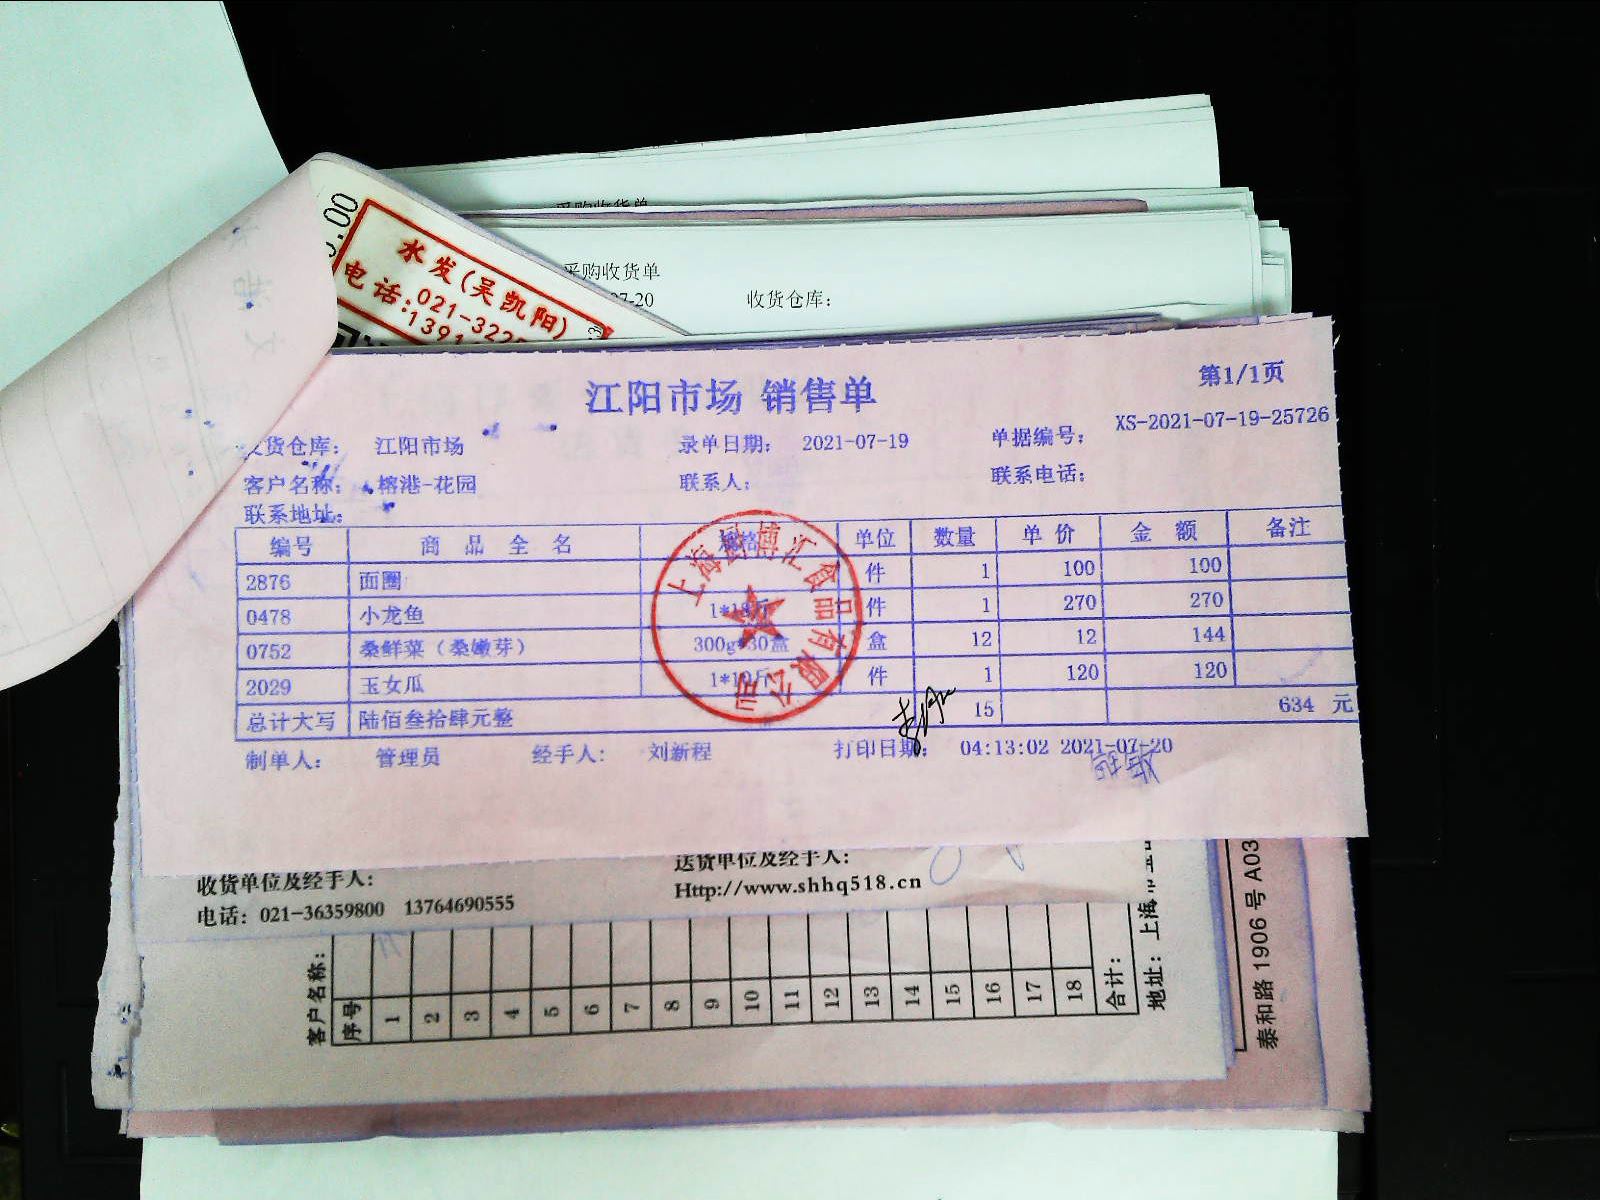 .00
水发(吴凯阳)
电话:021-322
1391
采购收货单
采购收货单
7-20
收货仓库:
江阳市场 销售单
第1/1页
货仓库: 江阳市场 录单日期: 2021-07-19 单据编号: XS-2021-07-19-25726
客户名称: 榕港-花园 联系人: 联系电话:
联系地址:
编号 商品全名 规格 单位 数量 单价 金额 备注
2876 面圈 件 1 100 100
0478 小龙鱼 件 1 270 270
0752 桑鲜菜(桑嫩芽) 300g*30盒 盒 12 12 144
2029 玉女瓜 件 1 120 120
总计大写 陆佰叁拾肆元整 15 634 元
制单人: 管理员 经手人: 刘新程 打印日期: 04:13:02 2021-07-20
上海 博汇食品有限公司
收货单位及经手人:
送货单位及经手人:
电话: 021-36359800 13764690555
Http://www.shhq518.cn
客户名称:
序号 1 2 3 4 5 6 7 8 9 10 11 12 13 14 15 16 17 18 合计:
地址: 上海
泰和路 1906 号 A03